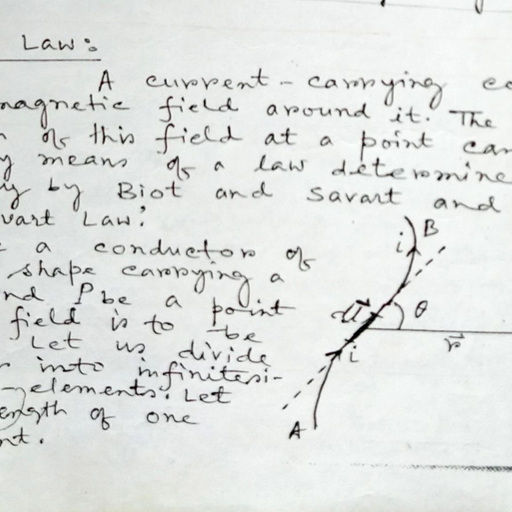 Law:
A current-carrying co
nagnetic field around it. The
n of this field at a point can
y means of a law determine
y by Biot and Savart and
vart Law:
a conductor of
shape carrying a
nd P be a point
field is to be
Let us divide
into infinitesi-
-elements. Let
ength of one
nt.
B
i
dl
θ
r
i
A